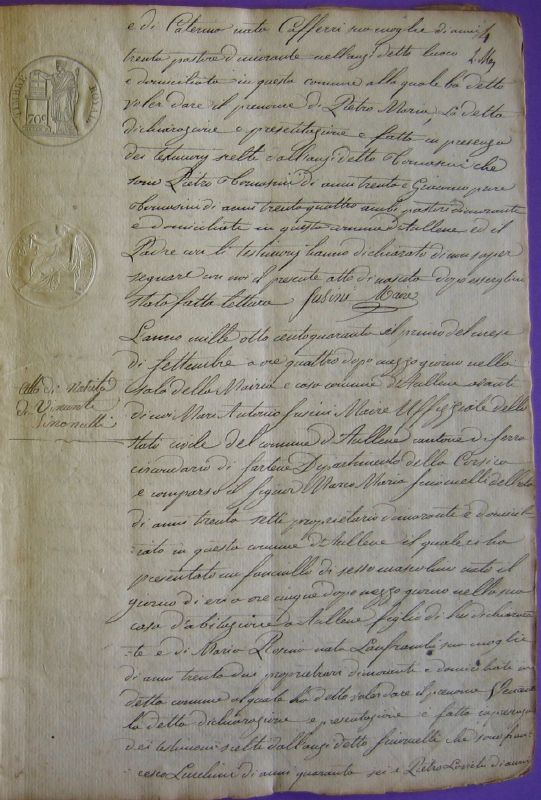 TIMBRE ROYAL
70 c
e di Caterina nata Cafferri sua moglie di anni
trenta pastore dimorante nell'anzi detto luoco
e domiciliata in questa comune alla quale ha detto
voler dare il prenome di Pietro Maria, la detta
dichiarazione e presentazione è fatta in presenza
dei testimonj scelti dall'anzi detto che
sono Pietro di anni trenta e Giacomo pure
di anni trenta quattro ambi pastori dimoranti
e domiciliati in questa comune d'Aullene ed il
Padre con li testimonj hanno dichiarato di non saper
segnare con noi il presente atto di nascita dopo essergline
stata fatta lettura
L'anno mille otto cento quaranta il primo del mese
di settembre a ore quattro dopo mezzo giorno nella
sala della Maireria e casa comune d'Aullene avanti
di noi Marc Antonio Maire Uffiziale dello
stato civile del comune d'Aullene cantone di Serra
circondario di Sartene Dipartimento della Corsica
è comparso il signor Marco Maria
di anni trenta sette proprietario dimorante e domicil-
iato in questa comune d'Aullene il quale ci ha
presentato un fanciullo di sesso mascolino nato il
giorno di era ore cinque dopo mezzo giorno nella sua
casa d'abitazione a Aullene figlio di lui dichiaran-
te e di Maria Rosina nata Lanfranchi sua moglie
di anni trenta due proprietari dimoranti e domiciliati in
detta comune al quale ha detto voler dare il prenome
la detta dichiarazione e presentazione è fatta in presenza
dei testimoni scelti dall'anzi detto che sono Fran-
cesco Lucchini di anni quaranta sei e Pietro di anni
atto di nascita
di